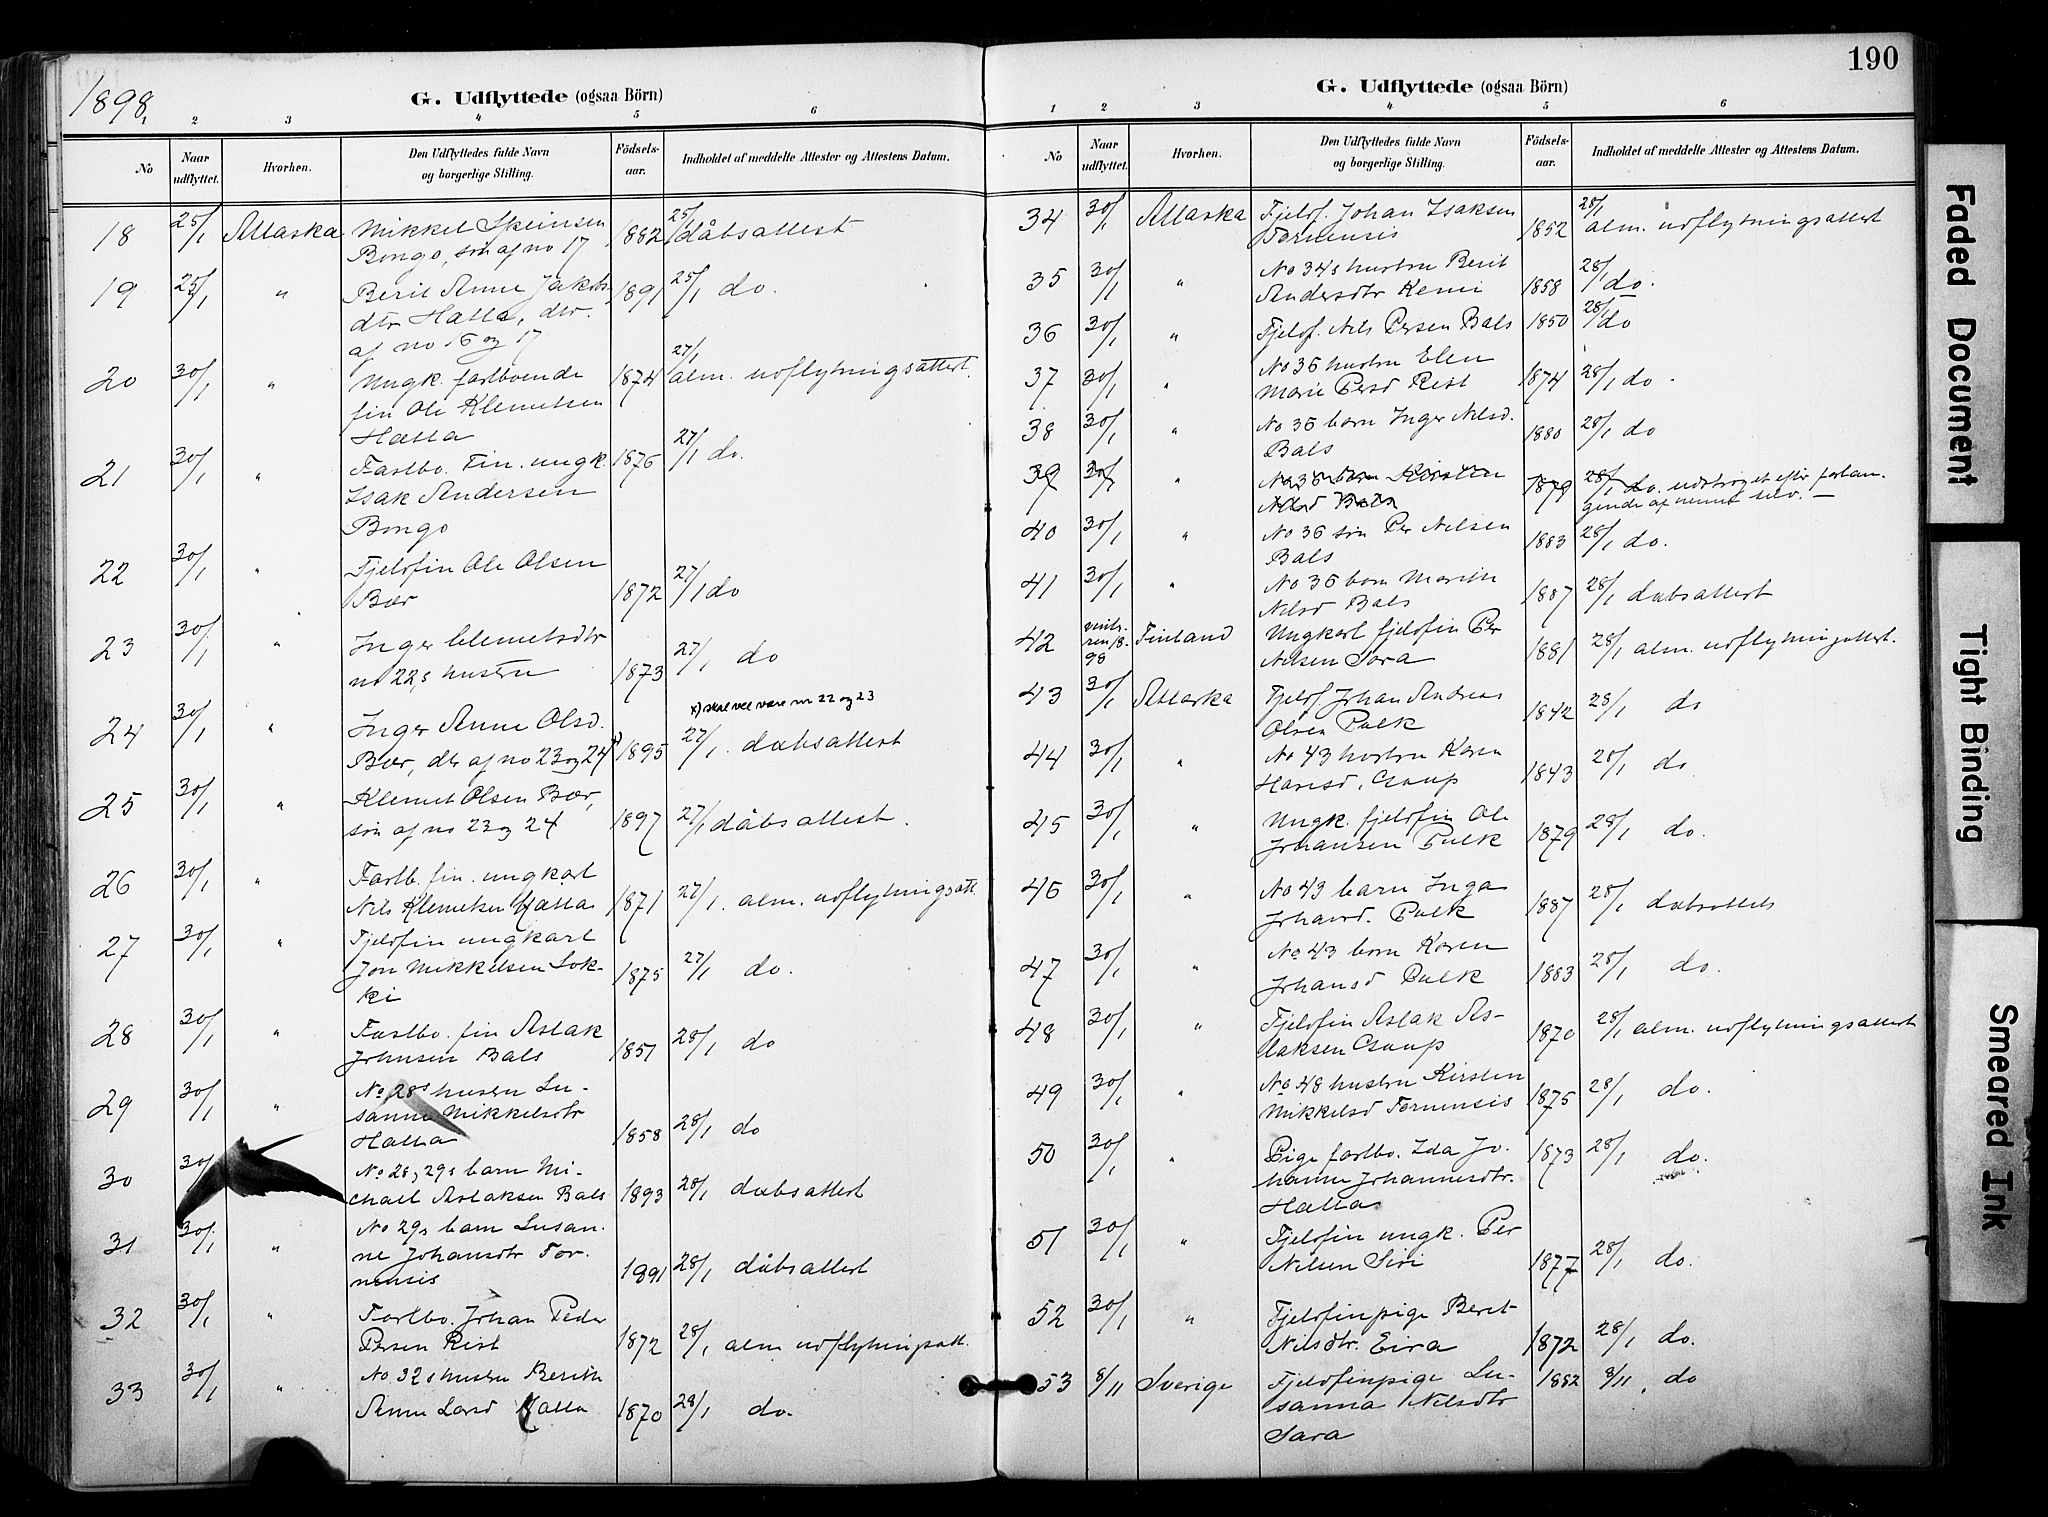 1898.
G. Udflyttede (ogsaa Börn)
1 2 3 4 5 6
No
Naar udflyttet.
Hvorhen.
Den Udflyttedes fulde Navn og borgerlige Stilling.
Födsels-aar.
Indholdet af meddelte Attester og Attestens Datum.
18 25/1 Allaska Mikkel Skeinsen 1882 25/1 dåbsattest
Bongo, søn af no 17
19 25/1 " Berit Anne Jakobs- 1891 25/1 do.
dtr Hætta, dtr.
af no 16 og 17
20 30/1 " Ungk. fastboende 1874 27/1 alm. udflytningsattest.
fin Ole Klemetsen
Hætta
21 30/1 " Fastbo. Fin. ungk. 1876 27/1 do.
Isak Andersen
Bongo
22 30/1 " Fjeldfin Ole Olsen
Bær 1872 27/1 do
23 30/1 " Inger Clemetsdtr
no 22,s hustru 1873 27/1 do
x) skal vel være nr 22 og 23
24 30/1 " Inger Anne Olsd.
Bær, dtr af no 23 og 24 x) 1895 27/1. daabsattest
25 30/1 " Klemet Olsen Bær,
søn af no 23 og 24 1897 27/1 dåbsattest.
26 30/1 " Fastb. fin. ungkarl
Nils Klemetsen Hætta 1871 27/1. alm. udflytningsatt.
27 30/1 " Fjeldfin ungkarl
Jon Mikkelsen Lok- 1875 27/1 do.
ki
28 30/1 " Fastbo. fin Aslak
Johnsen Bals 1851 28/1 do
29 30/1 " No 28s hustru Su-
sanne Mikkelsdtr
Hætta 1858 28/1 do
30 30/1 No 28, 29s barn Mi-
chael Aslaksen Bals 1893 28/1 daabsattest
31 30/1 " No 29s barn Susan-
ne Johansdtr Tor-
nensis 1891 28/1 dåbsattest
32 30/1 " Fastbo. Johan Peder
Persen Rist 1872 28/1 alm udflytningsatt.
33 30/1 " No 32s hustru Berith
Anne Larsd Hætta 1870 28/1 do.
190
G. Udflyttede (ogsaa Börn)
1 2 3 4 5 6
No
Naar udflyttet.
Hvorhen.
Den Udflyttedes fulde Navn og borgerlige Stilling.
Födsels-aar.
Indholdet af meddelte Attester og Attestens Datum.
34 30/1 Allaska Fjeldf. Johan Isaksen
Tornensis 1852 28/1 alm. udflytningsattest
35 30/1 " No 34s hustru Berit
Andersdtr Kemi 1858 28/1 do.
36 30/1 " Fjeldf. Nils Persen Bals 1850 28/1 do
37 30/1 " No 36 hustru Elen
Marie Persd Rist 1874 28/1 do.
38 30/1 " No 36 barn Inger Nilsd.
Bals 1880 28/1 do
39 30/1 " No 36 barn Kirsten 1879 28/1 do. udstrøget efter forlan-
Nilsd Bals gende af nemnt selv.
40 30/1 " No 36 søn Per Nilsen
Bals 1883 28/1 do.
41 30/1 " No 36 barn Marith
Nilsd Bals 1887 28/1 daabsattest
42 vint-ren 18-98 Finland Ungkarl fjeldfin Per
Nilsen Sara 1881 28/1 alm. udflytningsattest.
43 30/1 Allaska Fjeldf Johan Andreas
Olsen Pulk 1842 28/1 do
44 30/1 " No 43 hustru Karen
Hansd. Csaup 1843 28/1 do
45 30/1 " Ungk. fjeldfin Ole
Johansen Pulk 1879 28/1 do.
46 30/1 " No 43 barn Inga
Johansd. Pulk 1887 28/1 daabsattest
47 30/1 " No 43 barn Karen
Johansd Pulk 1883 28/1 do.
48 30/1 " Fjeldfin Aslak As-
laksen Csaup 1870 28/1 alm. udflytningsattest
49 30/1 " No 48 hustru Kirsten
Mikkelsd Tornensis 1875 28/1 do.
50 30/1 " Pige fastbo. Ida Jo- 1873 28/1 do.
hanne Johannesdtr.
Hætta
51 30/1 " Fjeldfin ungk. Per
Nilsen Siri 1877 28/1 do.
52 30/1 " Fjeldfinpige Beret
Nilsdtr. Eira 1872 28/1 do.
53 8/11 Sverige Fjeldfinpige Su- 1882 8/11. do
sanna Nilsdtr
Sara
Faded Document
Tight Binding
Smeared Ink